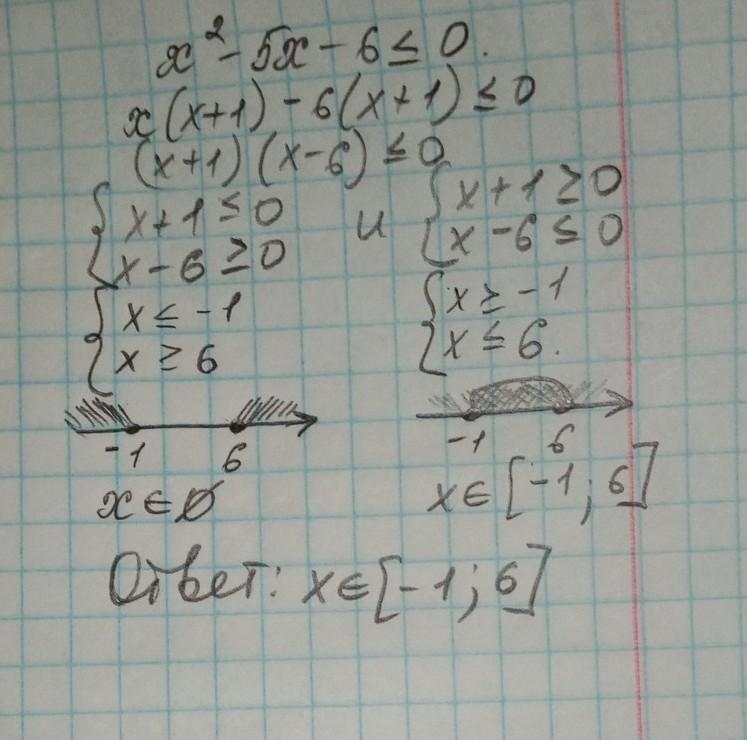 x² - 5x - 6 ≤ 0.
x(x+1) - 6(x+1) ≤ 0
(x+1)(x-6) ≤ 0
{ x+1 ≤ 0 и { x+1 ≥ 0
{ x-6 ≥ 0 { x-6 ≤ 0
{ x ≤ -1 { x ≥ -1
{ x ≥ 6 { x ≤ 6.
-1 6 -1 6
x ∈ ∅ x ∈ [-1; 6]
Ответ: x ∈ [-1; 6]